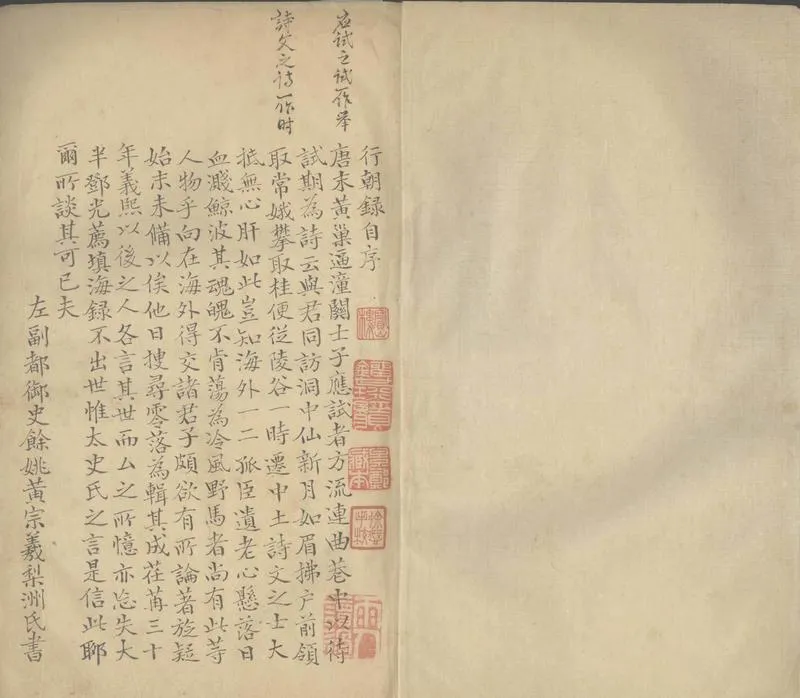 行朝録自序
唐末黃巢逼潼關士子應試者方流連曲巷中以待
試期為詩云與君同訪洞中仙新月如眉拂户前領
取常娥攀取桂便從陵谷一時遷中土詩文之士大
抵無心肝如此豈知海外一二孤臣遺老心懸落日
血濺鯨波其魂魄不肯蕩為冷風野馬者尚有此等
人物乎向在海外得交諸君子頗欲有所論著旋疑
始末未備以俟他日搜尋零落為輯其成荏苒三十
年義熙以後之人各言其世而厶之所憶亦忘失大
半鄧光薦填海録不出世惟太史氏之言是信此聊
爾所談其可已夫
左副都御史餘姚黃宗羲梨洲氏書
應試之試一作舉
詩文之詩一作时